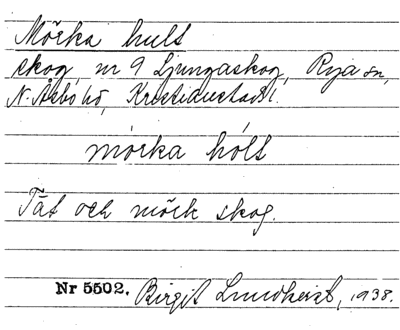 Mörka hult
skog, nr 9 Ljungaskog, Röja sn,
N. Åsbo hd, Kristianstads l.
mörka hólt
Tät och mörk skog.
Nr 5502. Birgit Lundkvist, 1938.